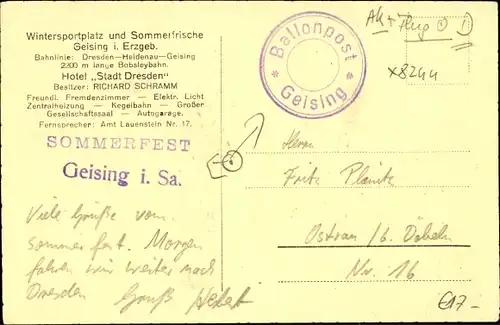 Wintersportplatz und Sommerfrische
Geising i. Erzgeb.
Bahnlinie: Dresden—Heidenau—Geising
2200 m lange Bobsleybahn.
Hotel „Stadt Dresden"
Besitzer: RICHARD SCHRAMM
Freundl. Fremdenzimmer — Elektr. Licht
Zentralheizung — Kegelbahn — Großer
Gesellschaftssaal — Autogarage.
Fernsprecher: Amt Lauenstein Nr. 17.
SOMMERFEST
Geising i. Sa.
Viele Grüße vom
Sommerfest. Morgen
fahren wir weiter nach
Dresden Gruß
* Ballonpost *
Geising
x8244
Herrn
Fritz
Ostrau b. Döbeln
Nr. 16
€17-